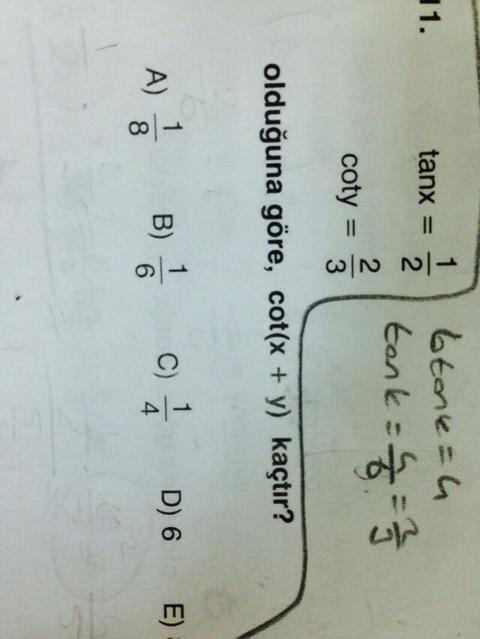 11.
tanx = 1/2
coty = 2/3
olduğuna göre, cot(x + y) kaçtır?
A) 1/8 B) 1/6 C) 1/4 D) 6 E)
6tank = 4
tank = 4/6 = 2/3